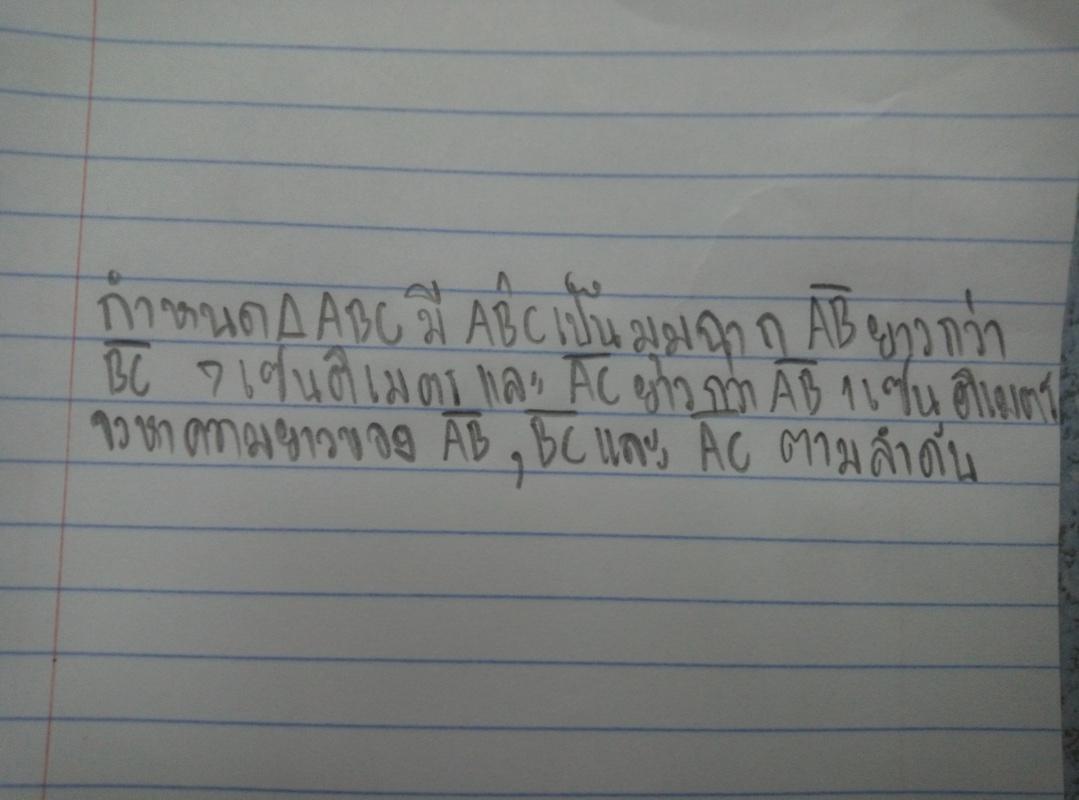 กำหนด Δ ABC มี AB̂C เป็นมุมฉาก A̅B̅ ยาวกว่า
B̅C̅ 7 เซนติเมตร และ A̅C̅ ยาวกว่า A̅B̅ 1 เซนติเมตร
จงหาความยาวของ A̅B̅ , B̅C̅ และ A̅C̅ ตามลำดับ